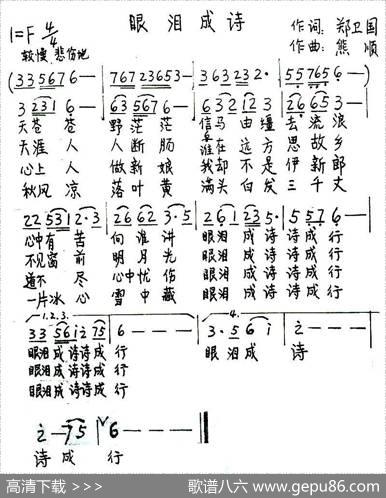 眼泪成诗
1=F 4/4
作词:郑卫国
较慢 悲伤地
作曲:熊 顺
(335676— | 767236 53— | 363232· | 557656—)
323 16— | 635676— | 632123 | 26653—
天苍苍 野茫茫 信马由缰 去流浪
天涯人 人断肠 谁在远方 思故乡
心上人 做新娘 我却不是 伊新郎
秋风凉 落叶黄 满头白发 三千丈
2253 12·3 | 26623·5 | 261235· | 5576—
心中有苦 向谁讲 眼泪成诗 诗成行
不见窗前 明月光 眼泪成诗 诗成行
道不尽 心中忧伤 眼泪成诗 诗成行
一片冰心 雪中藏 眼泪成诗 诗成行
1.2.3. 4.
3356i275 | 6——— | 3·56i | 2———
眼泪成诗诗成 行 眼泪成 诗
眼泪成诗诗成 行
眼泪成诗诗成 行
2—75 | 6———
诗成 行
高清下载 >>>
歌谱八六 www.gepu86.com